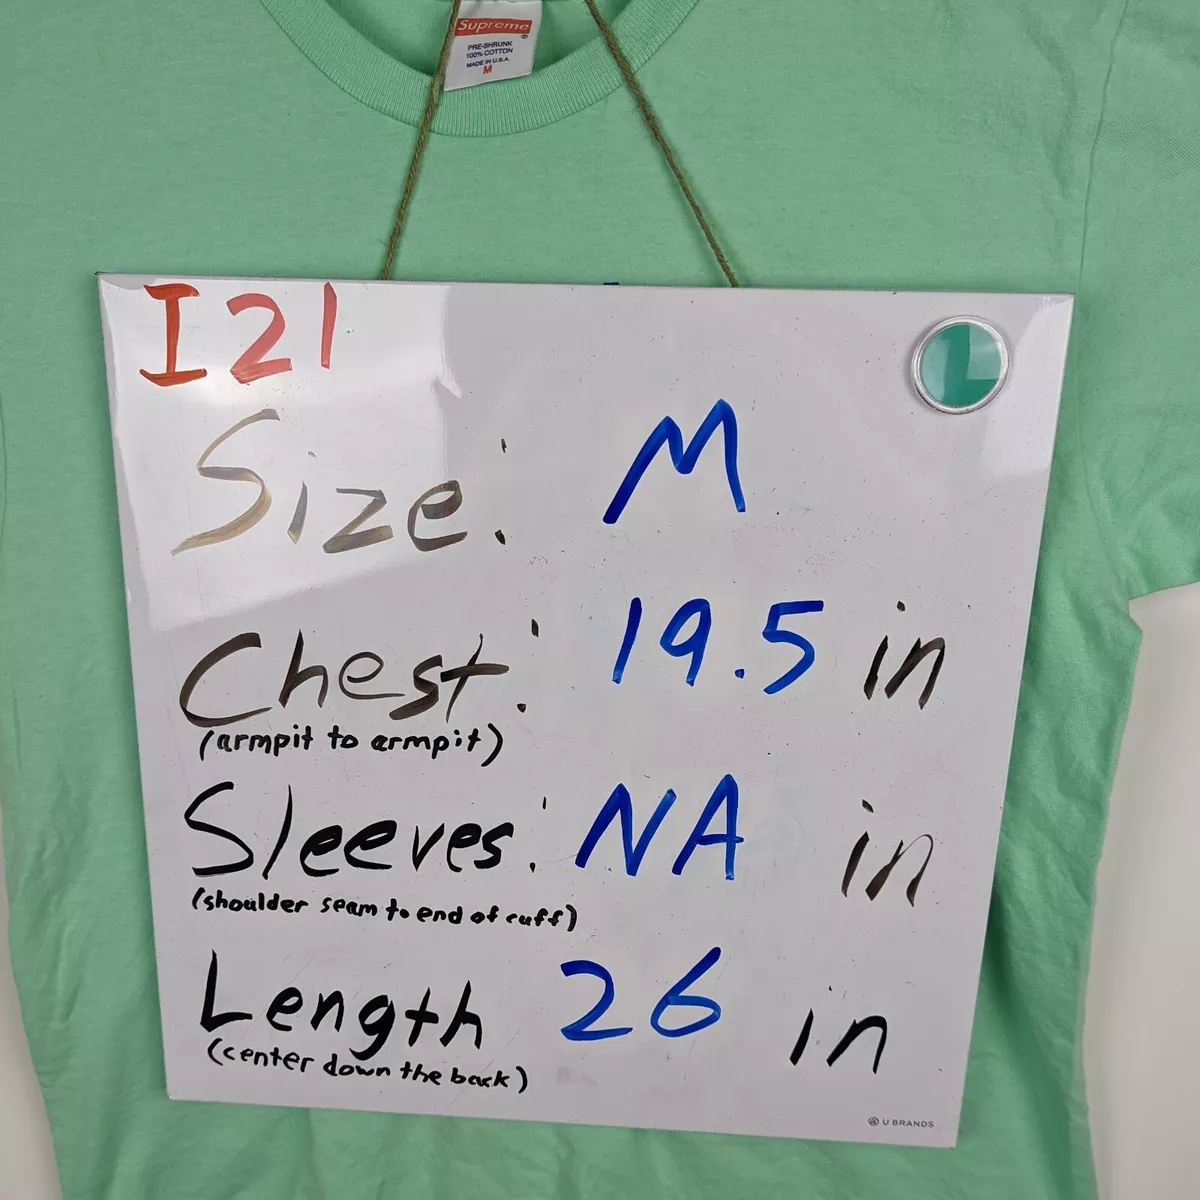 Supreme
®
PRE-SHRUNK
100% COTTON
MADE IN U.S.A.
M
I21
Size: M
Chest: 19.5 in
(armpit to armpit)
Sleeves: NA in
(shoulder seam to end of cuff)
Length 26 in
(center down the back)
U BRANDS